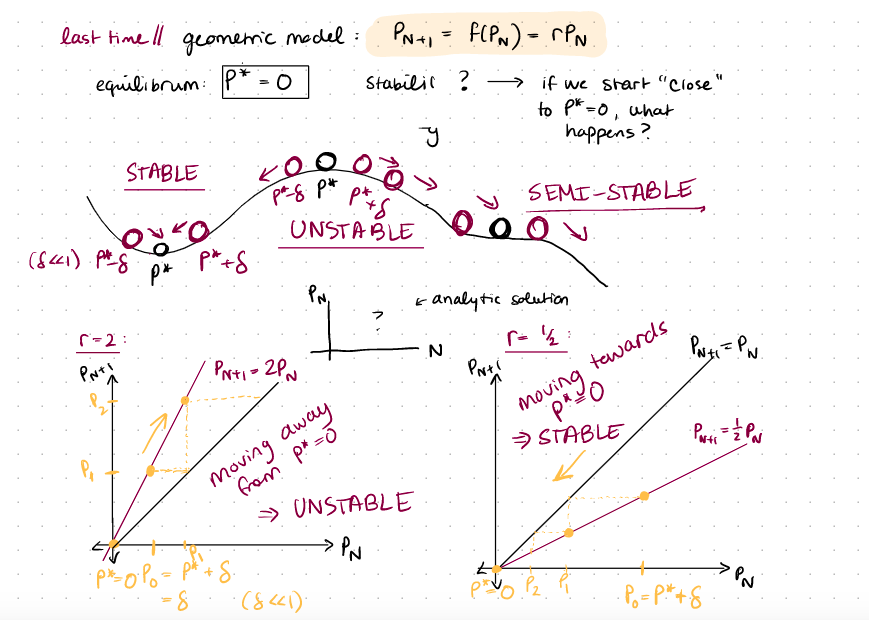 last time// geometric model: P_{N+1} = f(P_N) = rP_N
equilibrum: P* = 0 Stabilit ? → if we start "close"
to P*=0, what
happens?
y
STABLE
P*-δ P* P*+δ
UNSTABLE
SEMI-STABLE
(δ<<1) P*-δ P* P*+δ
P_N ? ← analytic solution
N
r=2:
P_{N+1}
P_{N+1} = 2P_N
P_2
P_1
moving away
from P*=0
⇒ UNSTABLE
P_N
P*=0 P_0 = P*+δ P_1
= δ (δ<<1)
r= 1/2:
P_{N+1}
P_{N+1} = P_N
moving towards
P*=0
⇒ STABLE
P_{N+1} = 1/2 P_N
P_N
P*=0 P_2 P_1 P_0=P*+δ